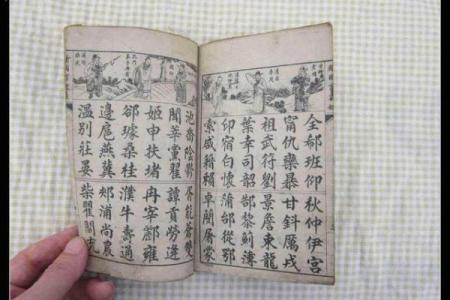 全郗班仰秋仲伊宮
甯仇欒暴甘鈄厲戎
祖武符劉景詹束龍
葉幸司韶郜黎薊薄
印宿白懷蒲邰從鄂
索咸籍賴卓藺屠蒙
池喬陰鬱胥能蒼雙
聞莘黨翟譚貢勞逄
姬申扶堵冉宰酈雍
郤璩桑桂濮牛壽通
邊扈燕冀郟浦尚農
溫別莊晏柴瞿閻充